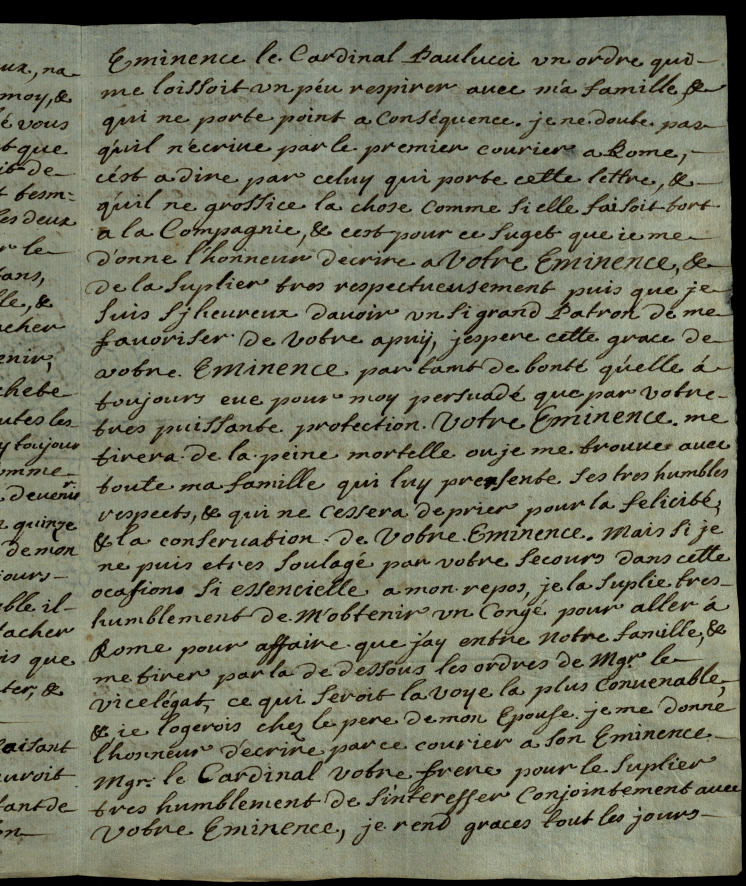 ux, na
moy, &
é vous
t que
it de
t tesm:
les deux
r le
tans,
lle, &
acher
enir,
chete
utes les
y toujour
omme
a devenir
quinze
de mon
jours
ble il
tacher
is que
ter, &
laisant
auroit
tant de
on
Eminence le Cardinal Paulucci un ordre qui
me loissoit un péu respirer avec m'a famille, &
qui ne porte point a Conséquence. je ne doute pas
qu'il n'ecrive par le premier courier a Rome,
c'ést a dire par celuy qui porte cette lettre, &
qu'il ne grossice la chose Comme si elle faisoit tort
a la Compagnie, & cest pour ce suget que ie me
d'onne l'honneur decrire a Votre Eminence, &
de la suplier tres respectueusement puis que je
suis sy heureux davoir un si grand Patron de me
favoriser de votre apuy, jespere cette grace de
votre Eminence par tamt de bonté qu'elle á
toujours eue pour moy persuadé que par votre
tres puissante protection Votre Eminence me
tirera de la peine mortelle ou je me trouve avec
toute ma famille qui luy presente ses tres humbles
respects, & qui ne cessera de prier pour la felicité,
& la conservation de Votre Eminence. Mais si je
ne puis etres soulagé par votre secours dans cette
ocasions si essencielle a mon repos, je la suplie tres
humblement de m'obtenir un Congé pour aller á
Rome pour affaire que jay entre notre famille, &
me tirer par la de dessous les ordres de Mgr. le
vicelégat, ce qui seroit la voye la plus convenable,
& ie logerois chez le pere de mon Epouse. je me donne
l'honneur d'ecrire par ce courier a son Eminence
Mgr. le Cardinal votre frere pour le suplier
tres humblement de s'interesser Conjointement avec
Votre Eminence, je rend graces tout les jours